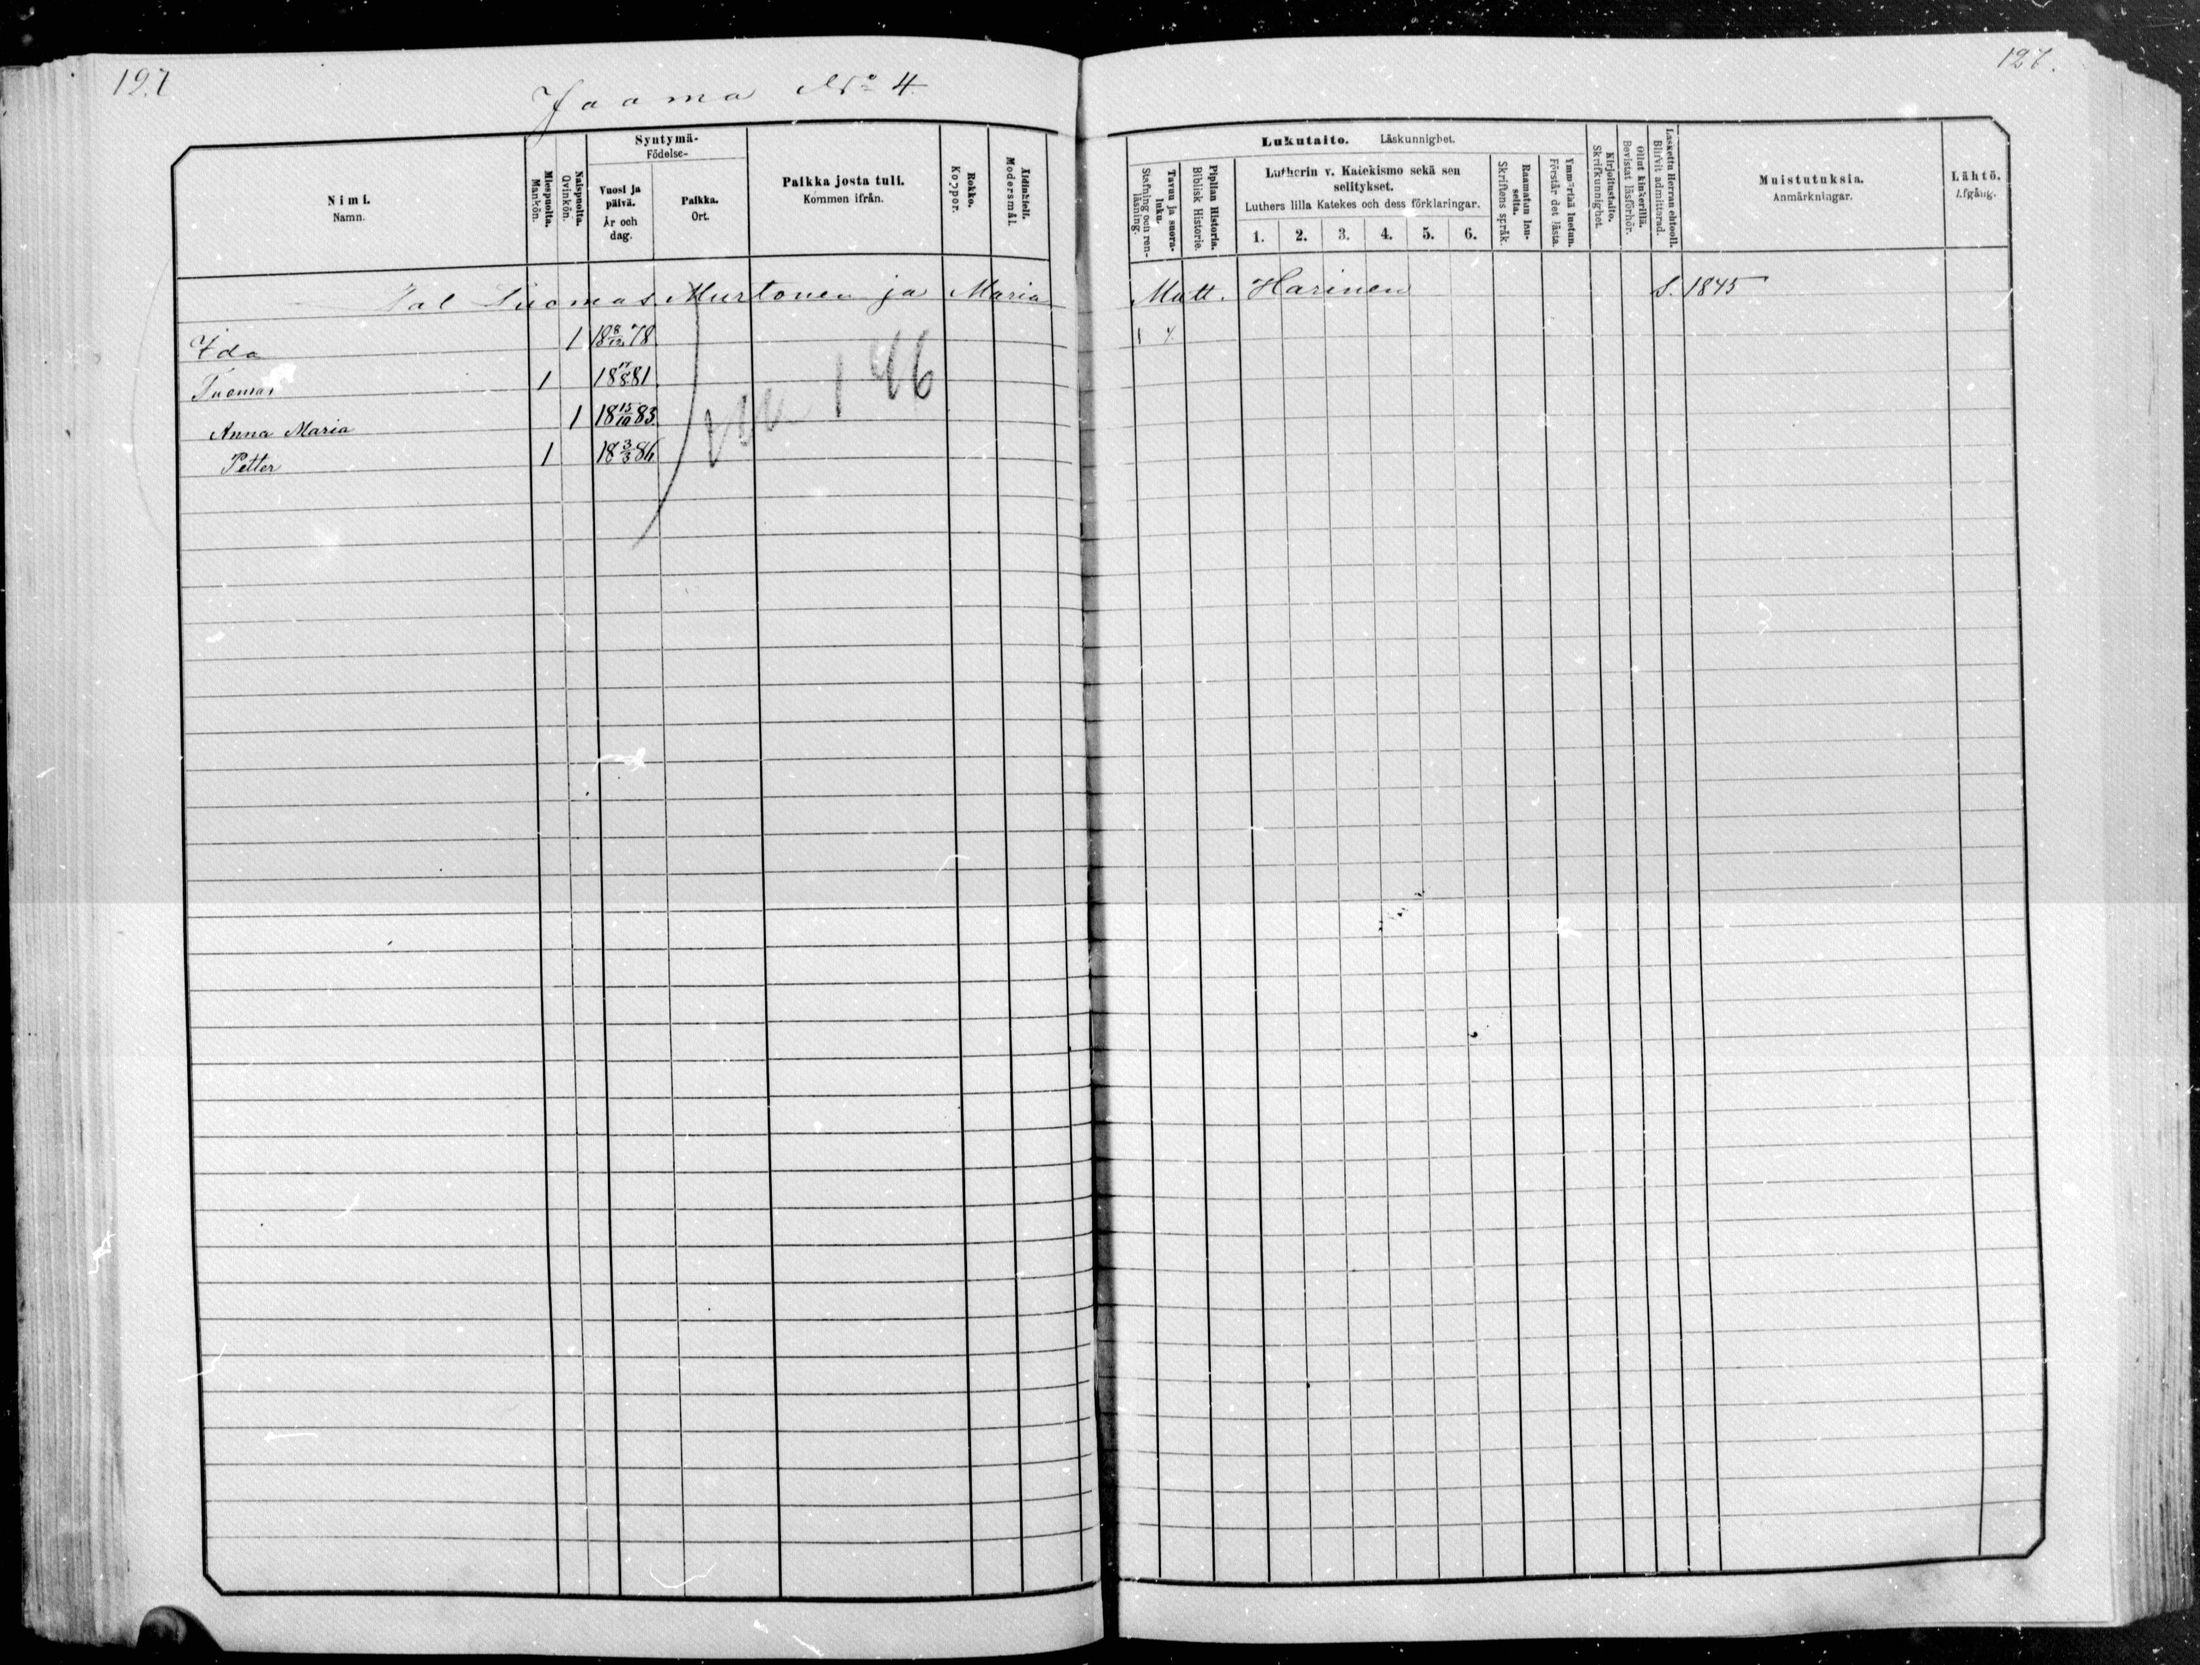 127
Jaama No 4
127.
Nimi.
Namn.
Miespuolta.
Mankön.
Naispuolta.
Qvinkön.
Syntymä-
Födelse-
Vuosi ja päivä.
År och dag.
Paikka.
Ort.
Paikka josta tuli.
Kommen ifrån.
Rokko.
Koppor.
Äidinkieli.
Modersmål.
Lukutaito. Läskunnighet.
Tavuu ja suora-luku.
Stafning och ren-läsning.
Piplian Historia.
Biblisk Historie.
Lutherin v. Katekismo sekä sen selitykset.
Luthers lilla Katekes och dess förklaringar.
1. 2. 3. 4. 5. 6.
Raamatun lau-seita.
Skriftens språk.
Ymmärtää luetun.
Förstår det lästa.
Kirjoitustaito.
Skrifkunnighet.
Ollut kinkerillä.
Bevistat läsförhör.
Laskettu Herran ehtooll.
Blifvit admitterad.
Muistutuksia.
Anmärkningar.
Lähtö.
Afgång.
Tal Tuomas Murtonen ja Maria Matt. Harinen S. 1845
Ida 1 18 8/12 78
Tuomas 1 18 /8 81
Anna Maria 1 18 15/10 83
Petter 1 18 3/3 86
146